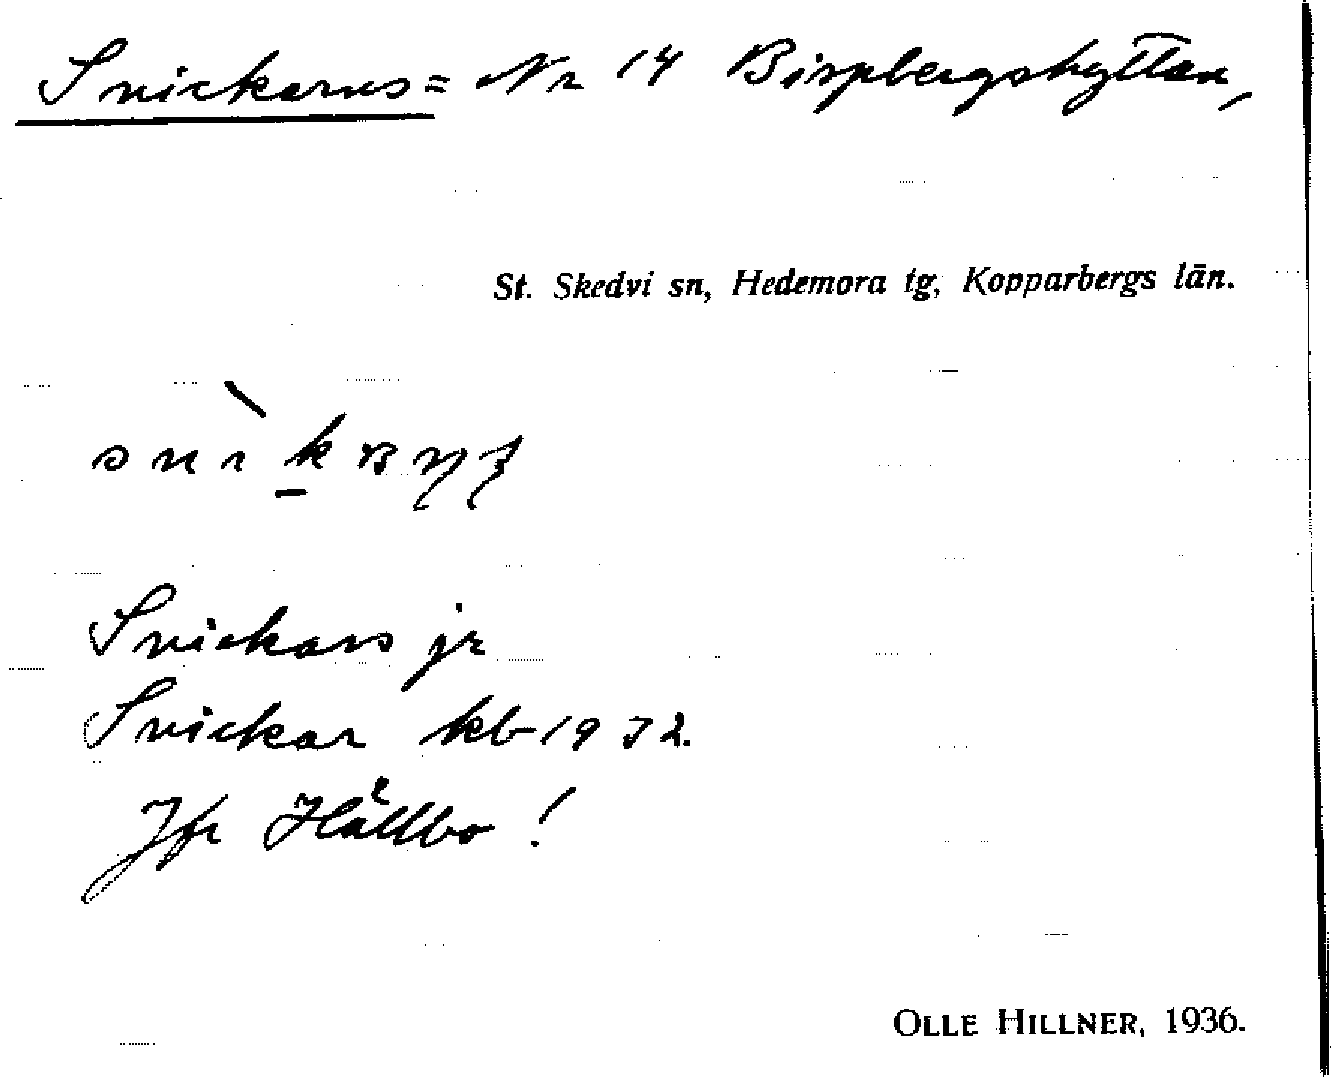 Snickarns = Nr 14 Bispbergshyttan,
St. Skedvi sn, Hedemora tg, Kopparbergs län.
Snickars jr
Snickar kb 1932.
Jfr Hällbo!
OLLE HILLNER, 1936.